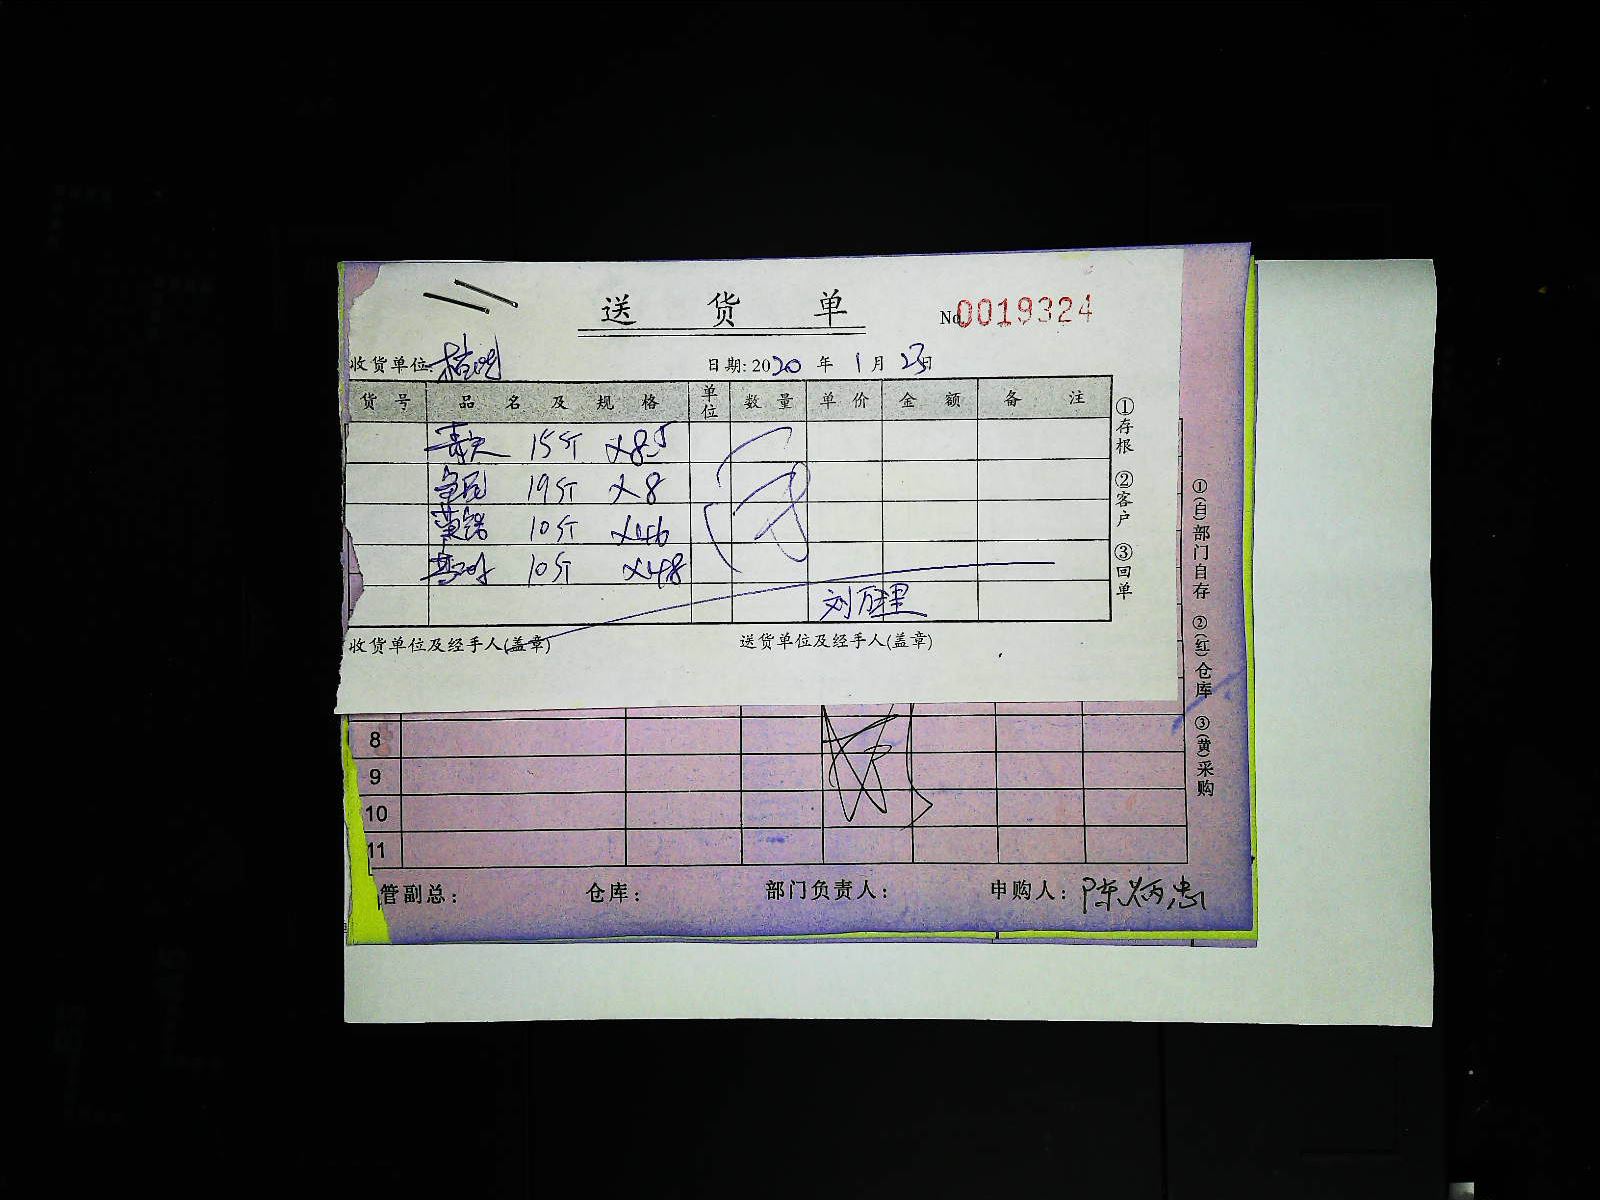 送 货 单
No.0019324
收货单位:
日期: 2020 年 1 月 23日
货 号 品 名 及 规 格 单位 数 量 单 价 金 额 备 注
15斤 ×8.5
19斤 ×8
10斤 ×46
10斤 ×48
刘万里
收货单位及经手人(盖章) 送货单位及经手人(盖章)
①存根 ②客户 ③回单
①(自)部门自存 ②(红)仓库 ③(黄)采购
8
9
10
11
管副总: 仓库: 部门负责人: 申购人: 陈炳忠